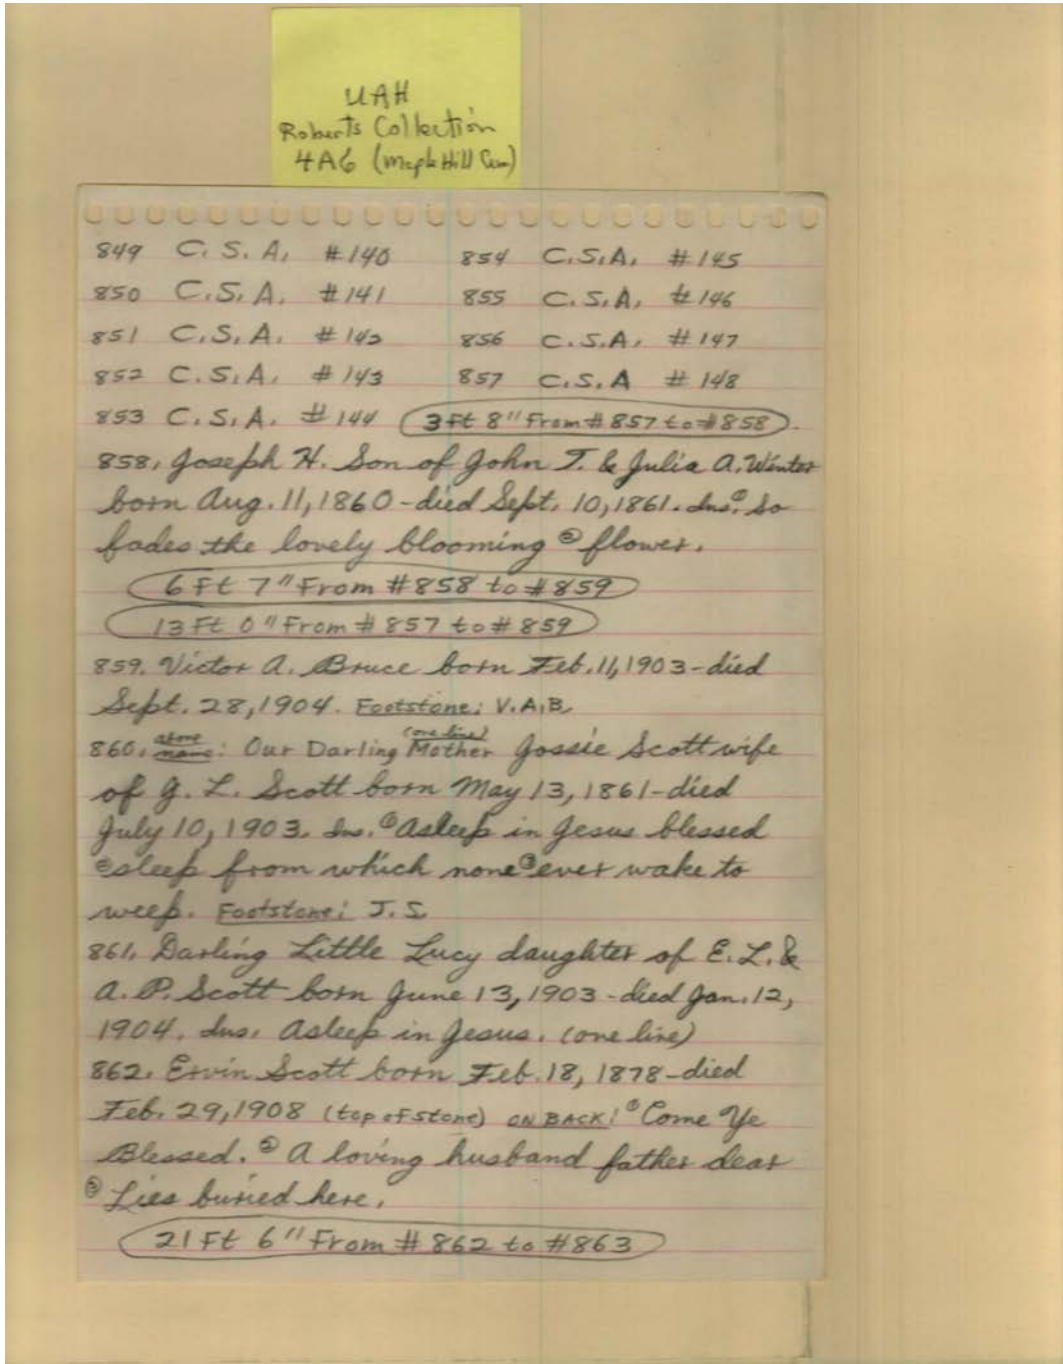 UAH
Roberts Collection
4A6 (Maple Hill Cem)
849 C.S.A. #140 854 C.S.A. #145
850 C.S.A. #141 855 C.S.A. #146
851 C.S.A. #142 856 C.S.A. #147
852 C.S.A. #143 857 C.S.A #148
853 C.S.A. #144 3 Ft 8" From #857 to #858.
858. Joseph H. Son of John T. & Julia A. Winter
born Aug. 11, 1860 - died Sept. 10, 1861. Ins. ① So
fades the lovely blooming ② flower.
6 Ft 7" From #858 to #859
13 Ft 0" From #857 to #859
859. Victor A. Bruce born Feb. 11, 1903 - died
Sept. 28, 1904. Footstone: V.A.B.
860. above name: Our Darling Mother (one line) Jossie Scott wife
of G. L. Scott born May 13, 1861 - died
July 10, 1903. Ins. ① Asleep in Jesus blessed
② sleep from which none ③ ever wake to
weep. Footstone: J.S.
861. Darling Little Lucy daughter of E. L. &
A. P. Scott born June 13, 1903 - died Jan. 12,
1904. Ins. Asleep in Jesus. (one line)
862. Ervin Scott born Feb. 18, 1878 - died
Feb. 29, 1908 (top of stone) ON BACK: ① Come Ye
Blessed. ② A loving husband father dear
③ Lies buried here.
21 Ft 6" From #862 to #863